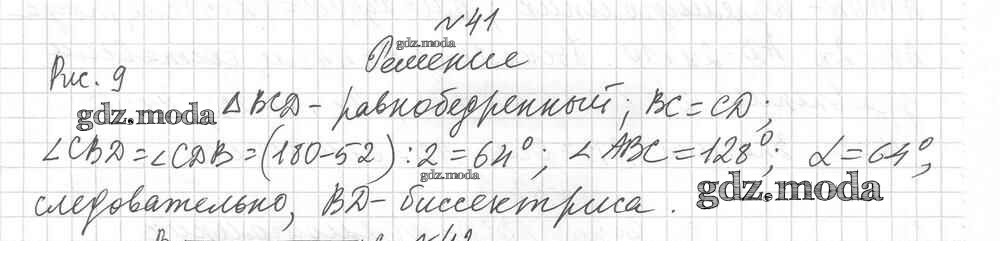 №41
gdz.moda
Решение
Рис. 9
gdz.moda
△BCD - равнобедренный; BC = CD;
∠CBD = ∠CDB = (180-52) : 2 = 64°; ∠ABC = 128°; α = 64°,
gdz.moda
следовательно, BD - биссектриса.
gdz.moda
№42